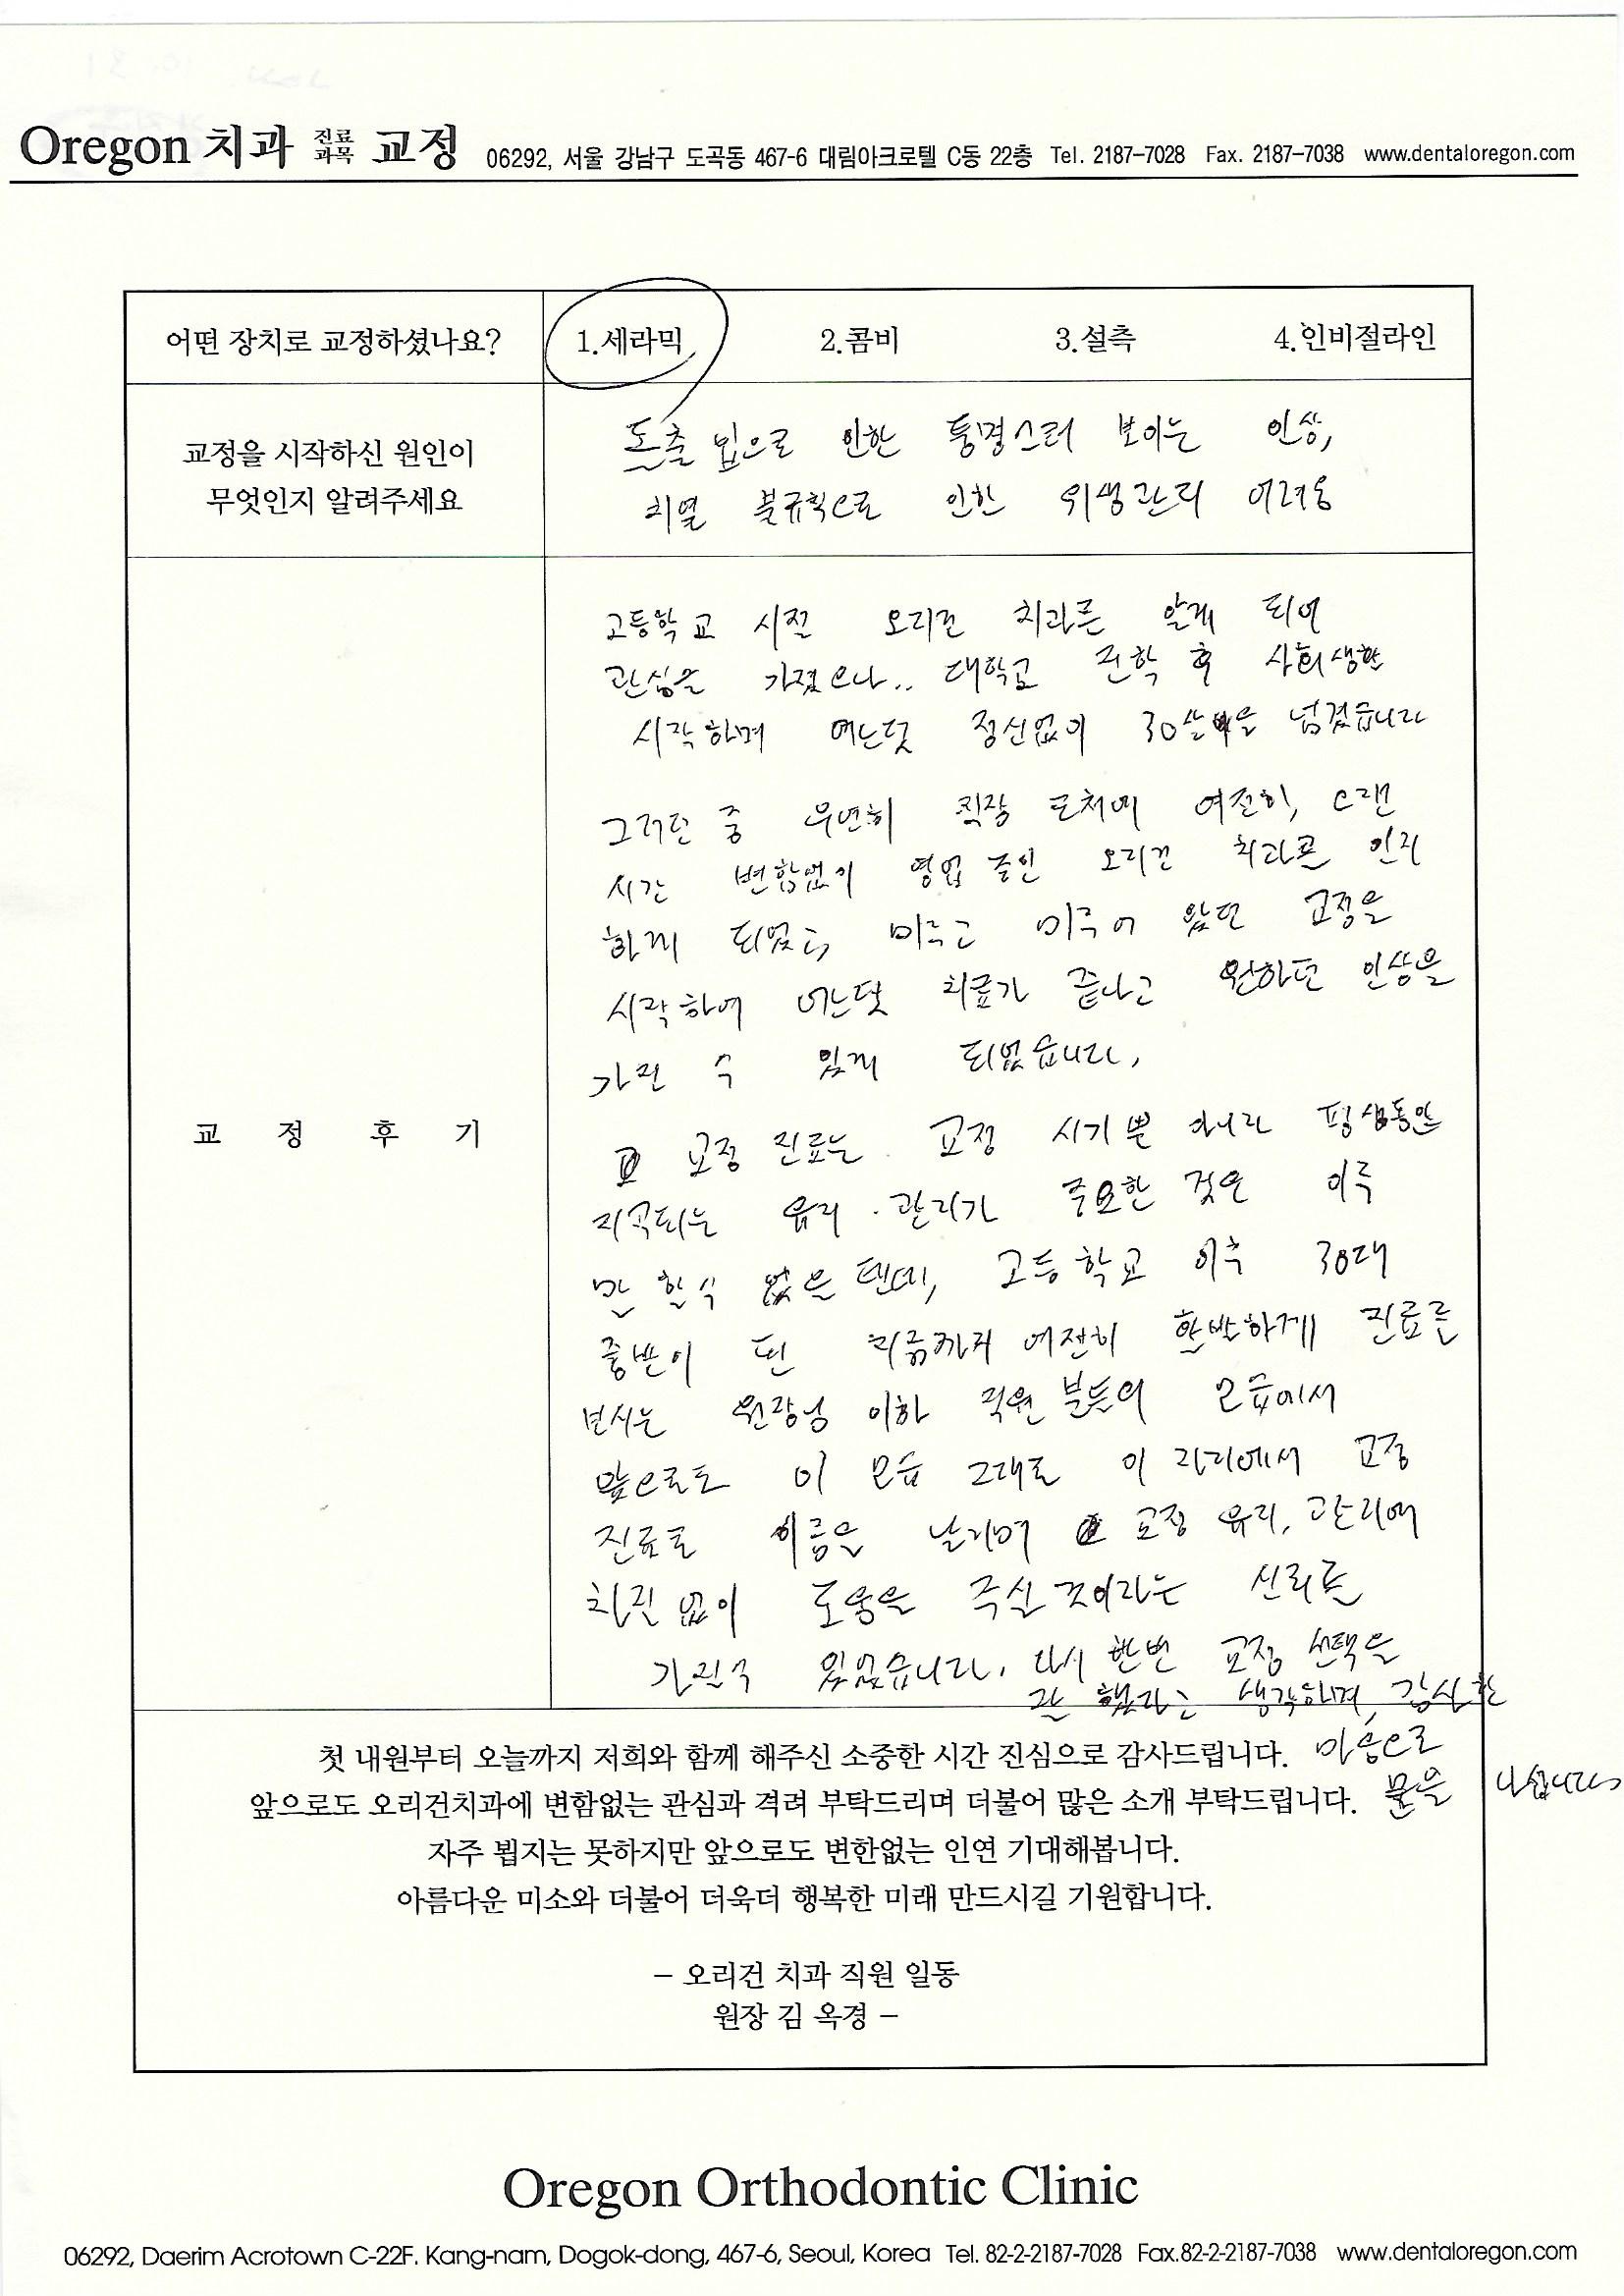 Oregon 치과 진료과목 교정 06292, 서울 강남구 도곡동 467-6 대림아크로텔 C동 22층 Tel. 2187-7028 Fax. 2187-7038 www.dentaloregon.com
어떤 장치로 교정하셨나요? 1.세라믹 2.콤비 3.설측 4.인비절라인
교정을 시작하신 원인이
무엇인지 알려주세요
돌출 입으로 인한 퉁명스러 보이는 인상,
치열 불규칙으로 인한 위생관리 어려움
교 정 후 기
고등학교 시절 오리건 치과를 알게 되어
관심을 가졌으나.. 대학교 진학 후 사회생활
시작하며 어느덧 정신없이 30살을 넘겼습니다
그러던 중 우연히 직장 근처에 여전히, 오랜
시간 변함없이 영업 중인 오리건 치과를 인지
하게 되었고, 미루고 미루어 왔던 교정을
시작하여 어느덧 치료가 끝나고 원하던 인상을
가질 수 있게 되었습니다.
교정 진료는 교정 시기 뿐 아니라 평생동안
지속되는 유지·관리가 중요한 것은 이루
말 할 수 없을 텐데, 고등학교 이후 30대
중반이 된 지금까지 여전히 활발하게 진료를
보시는 원장님 이하 직원 분들의 모습에서
앞으로도 이 모습 그대로 이 자리에서 교정
진료로 이름을 날리며 교정 유지, 관리에
차질 없이 도움을 주실 것이라는 신뢰를
가질 수 있었습니다. 다시 한번 교정 선택을
잘 했다고 생각하며, 감사한
마음으로
문을 나섭니다
첫 내원부터 오늘까지 저희와 함께 해주신 소중한 시간 진심으로 감사드립니다.
앞으로도 오리건치과에 변함없는 관심과 격려 부탁드리며 더불어 많은 소개 부탁드립니다.
자주 뵙지는 못하지만 앞으로도 변한없는 인연 기대해봅니다.
아름다운 미소와 더불어 더욱더 행복한 미래 만드시길 기원합니다.
– 오리건 치과 직원 일동
원장 김 옥경 –
Oregon Orthodontic Clinic
06292, Daerim Acrotown C-22F. Kang-nam, Dogok-dong, 467-6, Seoul, Korea Tel. 82-2-2187-7028 Fax.82-2-2187-7038 www.dentaloregon.com